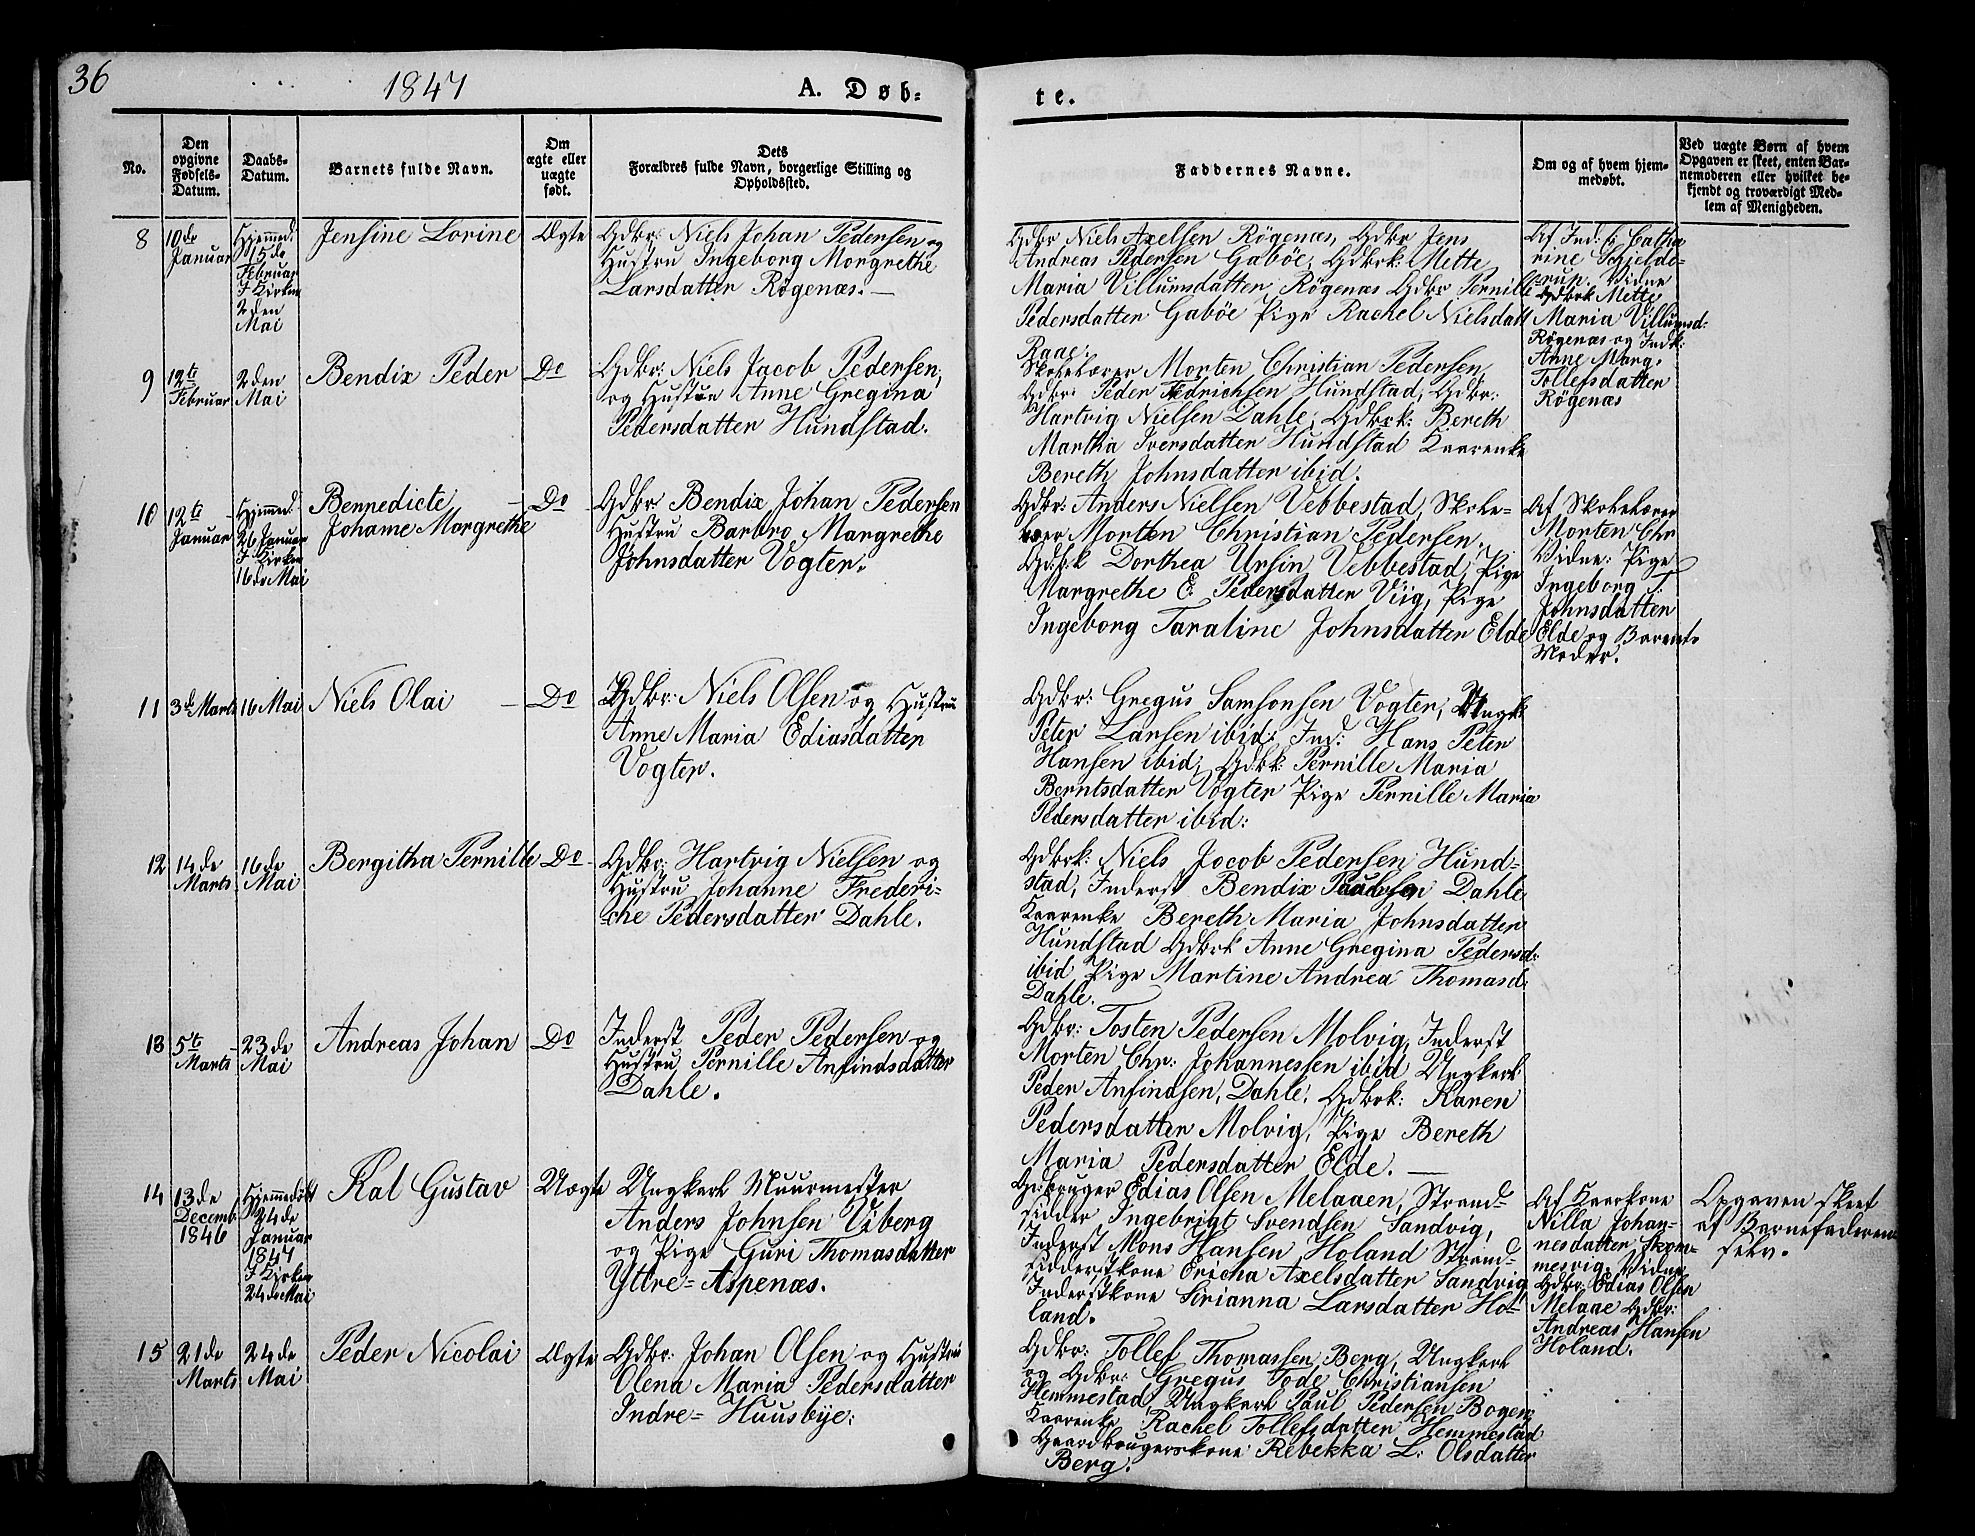 36
1847
A. Døb-
te.
No.
Den opgivne Fødsels-Datum.
Daabs-Datum.
Barnets fulde Navn.
Om ægte eller uægte født.
Dets Forældres fulde Navn, borgerlige Stilling og Opholdssted.
Faddernes Navne.
Om og af hvem hjem-medøbt.
Ved uægte Børn af hvem Opgaven er skeet, enten Bar-nemoderen eller hvilket be-kjendt og troværdigt Med-lem af Menigheden.
8
10de
Januar
Hjemmed:
15de
Februar
I Kirken
2den
Mai
Jensine Lorine
Ægte
Gdbr: Niels Johan Pedersen og
Hustru Ingeborg Morgrethe
Larsdatter Røgenæs.
Gdbr Niels Axelsen Røgenæs, Gdbr Jens
Andreas Pedersen Gaböe, Gdbrk: Mette
Maria Villumsdatter Røgenæs Gdbr Pernille
Pedersdatter Gaböe Pige Rachel Nielsdatt
Raae.
Af Ind: Catha
rine Schjelde-
rup. Vidne
Gdbrk Mette
Maria Villumsd:
Røgenæs og Indk:
Anne Marg.
Tollefsdatter
Røgenæs
9
12te
Februar
2den
Mai
Bendix Peder
Do
Gdbr: Niels Jacob Pedersen,
og Hustru Anne Gregina
Pedersdatter Hundstad.
Skolelærer Morten Christian Pedersen,
Gdbr: Peder Fedrichsen Hundstad, Gdbr:
Hartvig Nielsen Dahle, Gdbrk: Bereth
Martha Iversdatter Hundstad Kaarenke
Bereth Johnsdatter ibid.
10
12te
Januar
Hjemmd:
26 Januar
I Kirken
16de Mai
Bennedicte
Johanne Morgrethe
Do
Gdbr Bendix Johan Pedersen
Hustru Barbro Margrethe
Johnsdatter Vogter.
Gdbr: Anders Nielsen Vebbestad, Skole-
lærer Morten Christian Pedersen,
Gdbrk Dorthea Ursin Vebbestad, Pige
Margrethe E. Pedersdatter Viig, Pige
Ingeborg Taraline Johnsdatter Elde
Af Skolelærer
Morten Chr
Vidne: Pige
Ingeborg T
Johnsdatter
Elde og Barnets
Moder.
11
3de Marts
16 Mai
Niels Olai
Do
Gdbr: Niels Olsen og Hustru
Anne Maria Ediasdatter
Vogter.
Gdbr: Gregus Samsonsen Vogter, Ungk:
Peter Larsen ibid, Ind: Hans Peter
Hansen ibid; Gdbk: Pernille Maria
Berntsdatter Vogter Pige Pernille Maria
Pedersdatter ibid:
12
14de
Marts
16de
Mai
Bergitha Pernille
Do
Gdbr: Hartvig Nielsen og
Hustru Johanne Frederi-
che Pedersdatter Dahle.
Gdbrk: Niels Jocob Pedersen Hund-
stad, Inderst Bendix Paulsen Dahle
Kaarenke Bereth Maria Johnsdatter
Hundstad Gdbrk Anne Gregina Pedersd:
ibid Pige Martine Andrea Thomasd:
Dahle.
13
5te
Marts
23de
Mai
Andreas Johan
Do
Inderst Peder Pedersen og
Hustru Pernille Anfindsdatter
Dahle.
Gdbr: Tosten Pedersen Molvig, Inderst
Morten Chr: Johannessen ibid Ungkerl:
Peder Anfindsen, Dahle, Gdbrk: Karen
Pedersdatter Molvig, Pige Bereth
Maria Pedersdatter Elde.
14
13de
Decemb:
1846
Hjemmedöbt
24de
Januar
1847
I Kirken
24de Mai
Kal Gustav
Uægte
Ungkerl Muurmester
Anders Johnsen Viberg
og Pige Guri Thomasdatter
Yttre-Aspenæs.
Gdbruger Edias Olsen Melaaen, Strand-
sidder Ingebrigt Svendsen Sandvig,
Inderst Mons Hansen Holand Strand-
sidderskone Ericha Axelsdatter Sandvig
Inderstkone Sirianna Larsdatter Ho-
land.
Af Kaarkone
Nilla Johan-
nesdatter Skom-
mesvig. Vidne
Gdbr: Edias Olsen
Melaae Gdbr:
Andreas Hansen
Holand.
Opgaven skeet
af Barnefaderen
selv.
15
21de
Marts
24de
Mai
Peder Nicolai
Ægte
Gdbr: Johan Olsen og Hustru
Olena Maria Pedersdatter
Indre-Huusbye:
Gdbr: Tollef Thomassen Berg, Ungkerl
og Gdbr: Gregus Tode Christiansen
Hemmestad, Ungkerl Paul Pedersen Bogen,
Kaarenke Rachel Tollefsdatter Hemmestad
Gaardbrugerskone Rebekka L: Olsdatter
Berg.